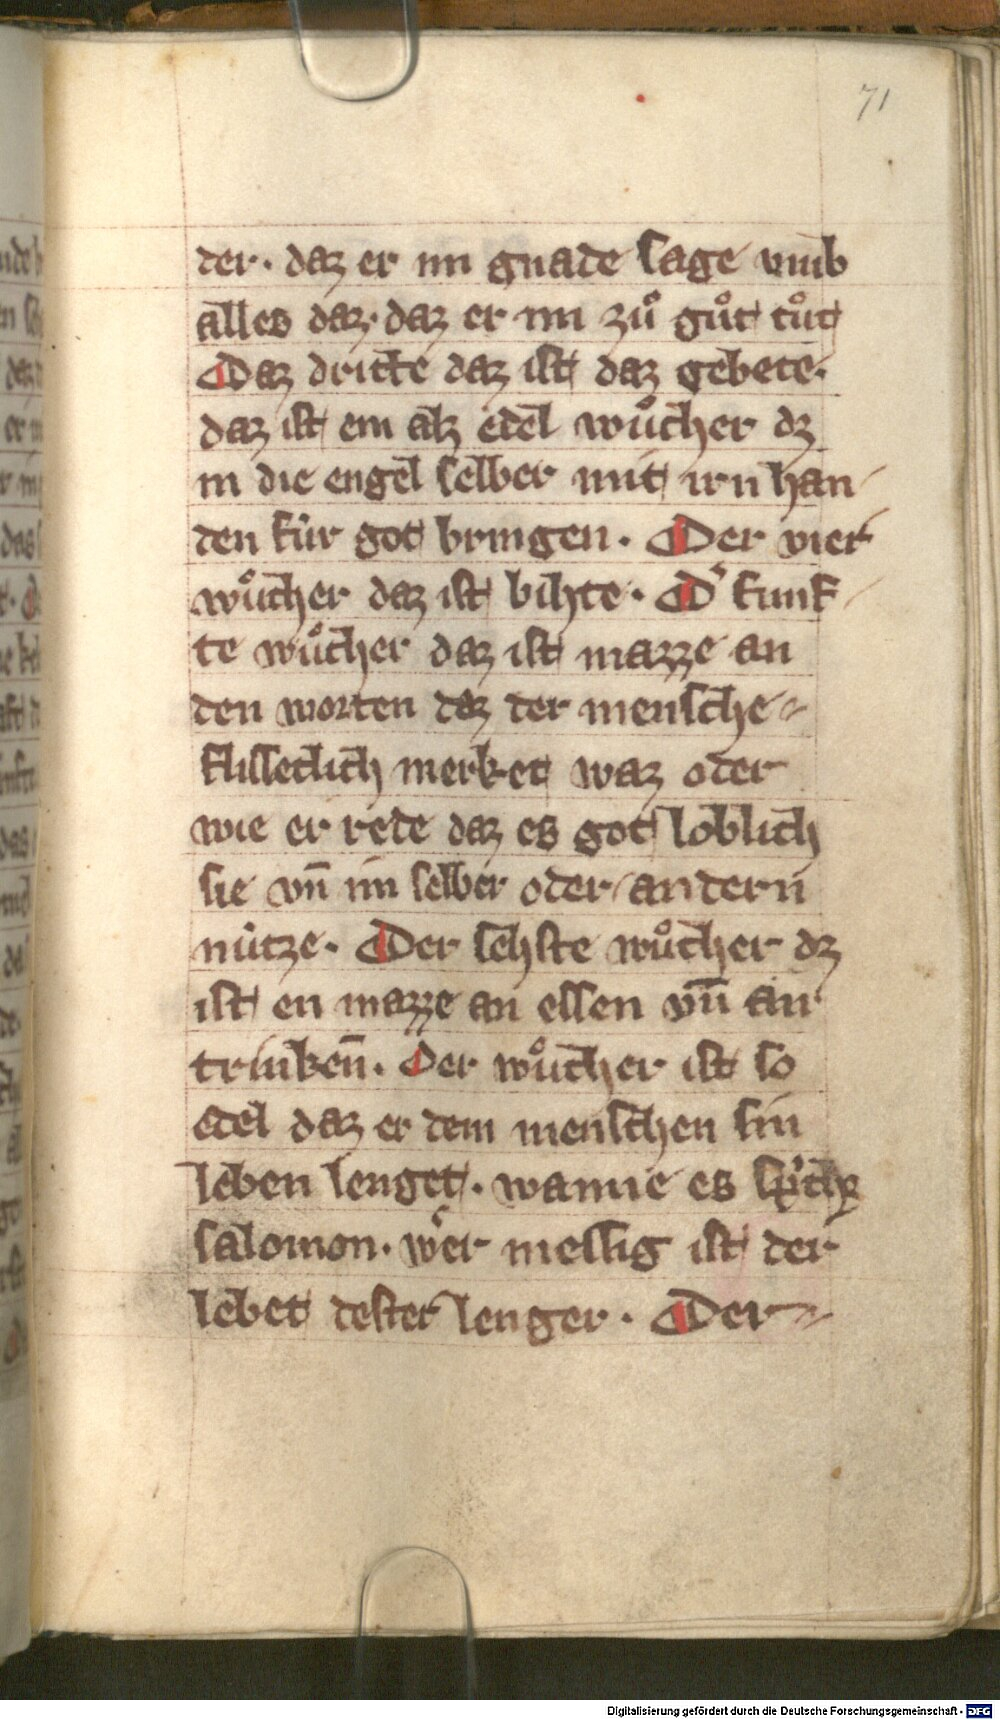 71
der · daz er im gnade sage vmb
alles daz · daz er im zuͦ guͦt tuͦt
Daz dritte daz ist daz gebete ·
daz ist ein alz edel wuͦcher dz
in die engel selber mit irn han
den fuͥr got bringen · Der vier
wuͦcher daz ist bihte · D' funf
te wuͦcher daz ist mazze an
den worten daz der mensche
flisseclich merket waz oder
wie er rede daz es got loblich
sie vn̄ im selber oder andern
nuͥtze · Der sehste wuͦcher dz
ist en mazze an essen vn̄ an
trinken̄ · Der wuͦcher ist so
edel daz er dem menschen sin
leben lenget · wanne es sprichet
salomon · wer messig ist der
lebet dester lenger · Der
Digitalisierung gefördert durch die Deutsche Forschungsgemeinschaft - DFG